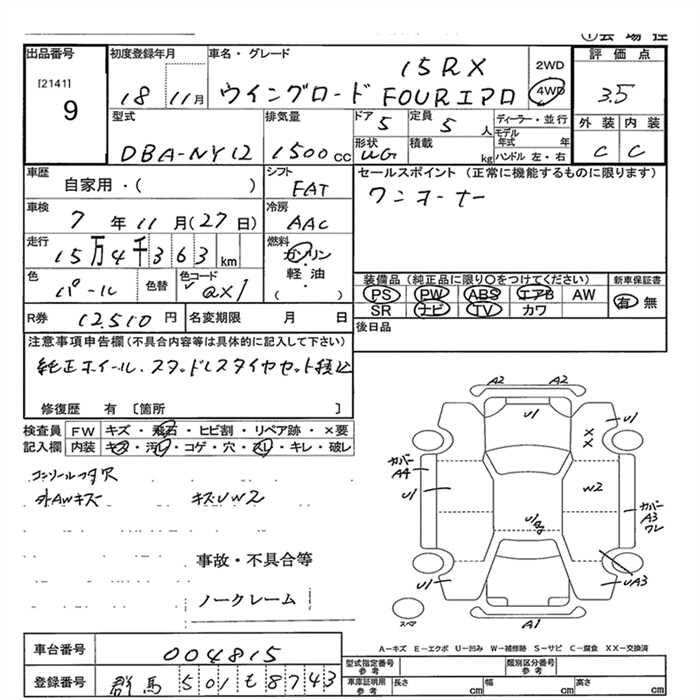 出品番号
[2141]
9
初度登録年月
18 11月
車名・グレード
15RX
ウイングロード FOURエアロ
2WD
4WD
評価点
3.5
外装 内装
C C
型式
DBA-NY12
排気量
1500cc
ドア 5
定員 5人
形状 WG
積載 kg
ディーラー・並行
モデル年式 年
ハンドル 左・右
車歴
自家用・( )
シフト
FAT
車検
7年11月(27日)
冷房
AAC
走行
15万4千363km
燃料
ガソリン・軽油・( )
色
パール
色替
色コード
QX1
R券 12,510円
名変期限 月 日
セールスポイント (正常に機能するものに限ります)
ワンオーナー
装備品 (純正品に限り○をつけてください)
PS PW ABS エアB AW
SR ナビ TV カワ
新車保証書
有 無
後日品
注意事項申告欄(不具合内容等は具体的に記入して下さい)
純正ホイール、スタッドレスタイヤセット積込
修復歴 有 [箇所 ]
検査員記入欄
FW キズ・飛石・ヒビ割・リペア跡・×要
内装 キズ・汚レ・コゲ・穴・スレ・キレ・破レ
コンソールフタ穴
外AWキズ キズUW2
事故・不具合等
ノークレーム
A2 A2
U1
U1
X
X
カバー
A4
U1
W2
カバー
A3
ワレ
U1
U1
UA3
A1
スペア
A-キズ E-エクボ U-凹み W-補修跡 S-サビ C-腐食 XX-交換済
車台番号
004815
登録番号
群馬 501 も 8743
型式指定番号 参考
類別区分番号 参考
車庫証明用 参考
長さ cm
幅 cm
高さ cm